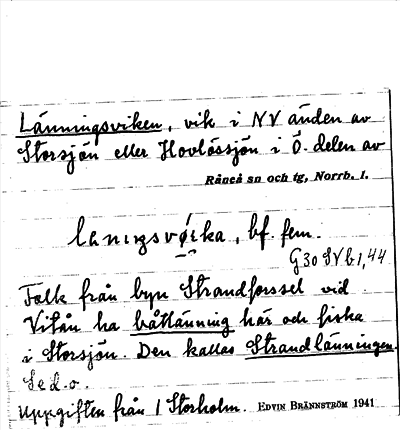 Länningsviken, vik i NV änden av
Storsjön eller Hovlössjön i Ö. delen av
Råneå sn och tg, Norrb. l.
lanıŋsvø̀ika, bf. fem.
G30 SV b 1,44
Folk från byn Strandforssel vid
Vitån ha båtlänning här och fiska
i Storsjön. Den kallas Strandlänningen.
Se d. o.
Uppgiften från 1 Storholm. EDVIN BRÄNNSTRÖM 1941